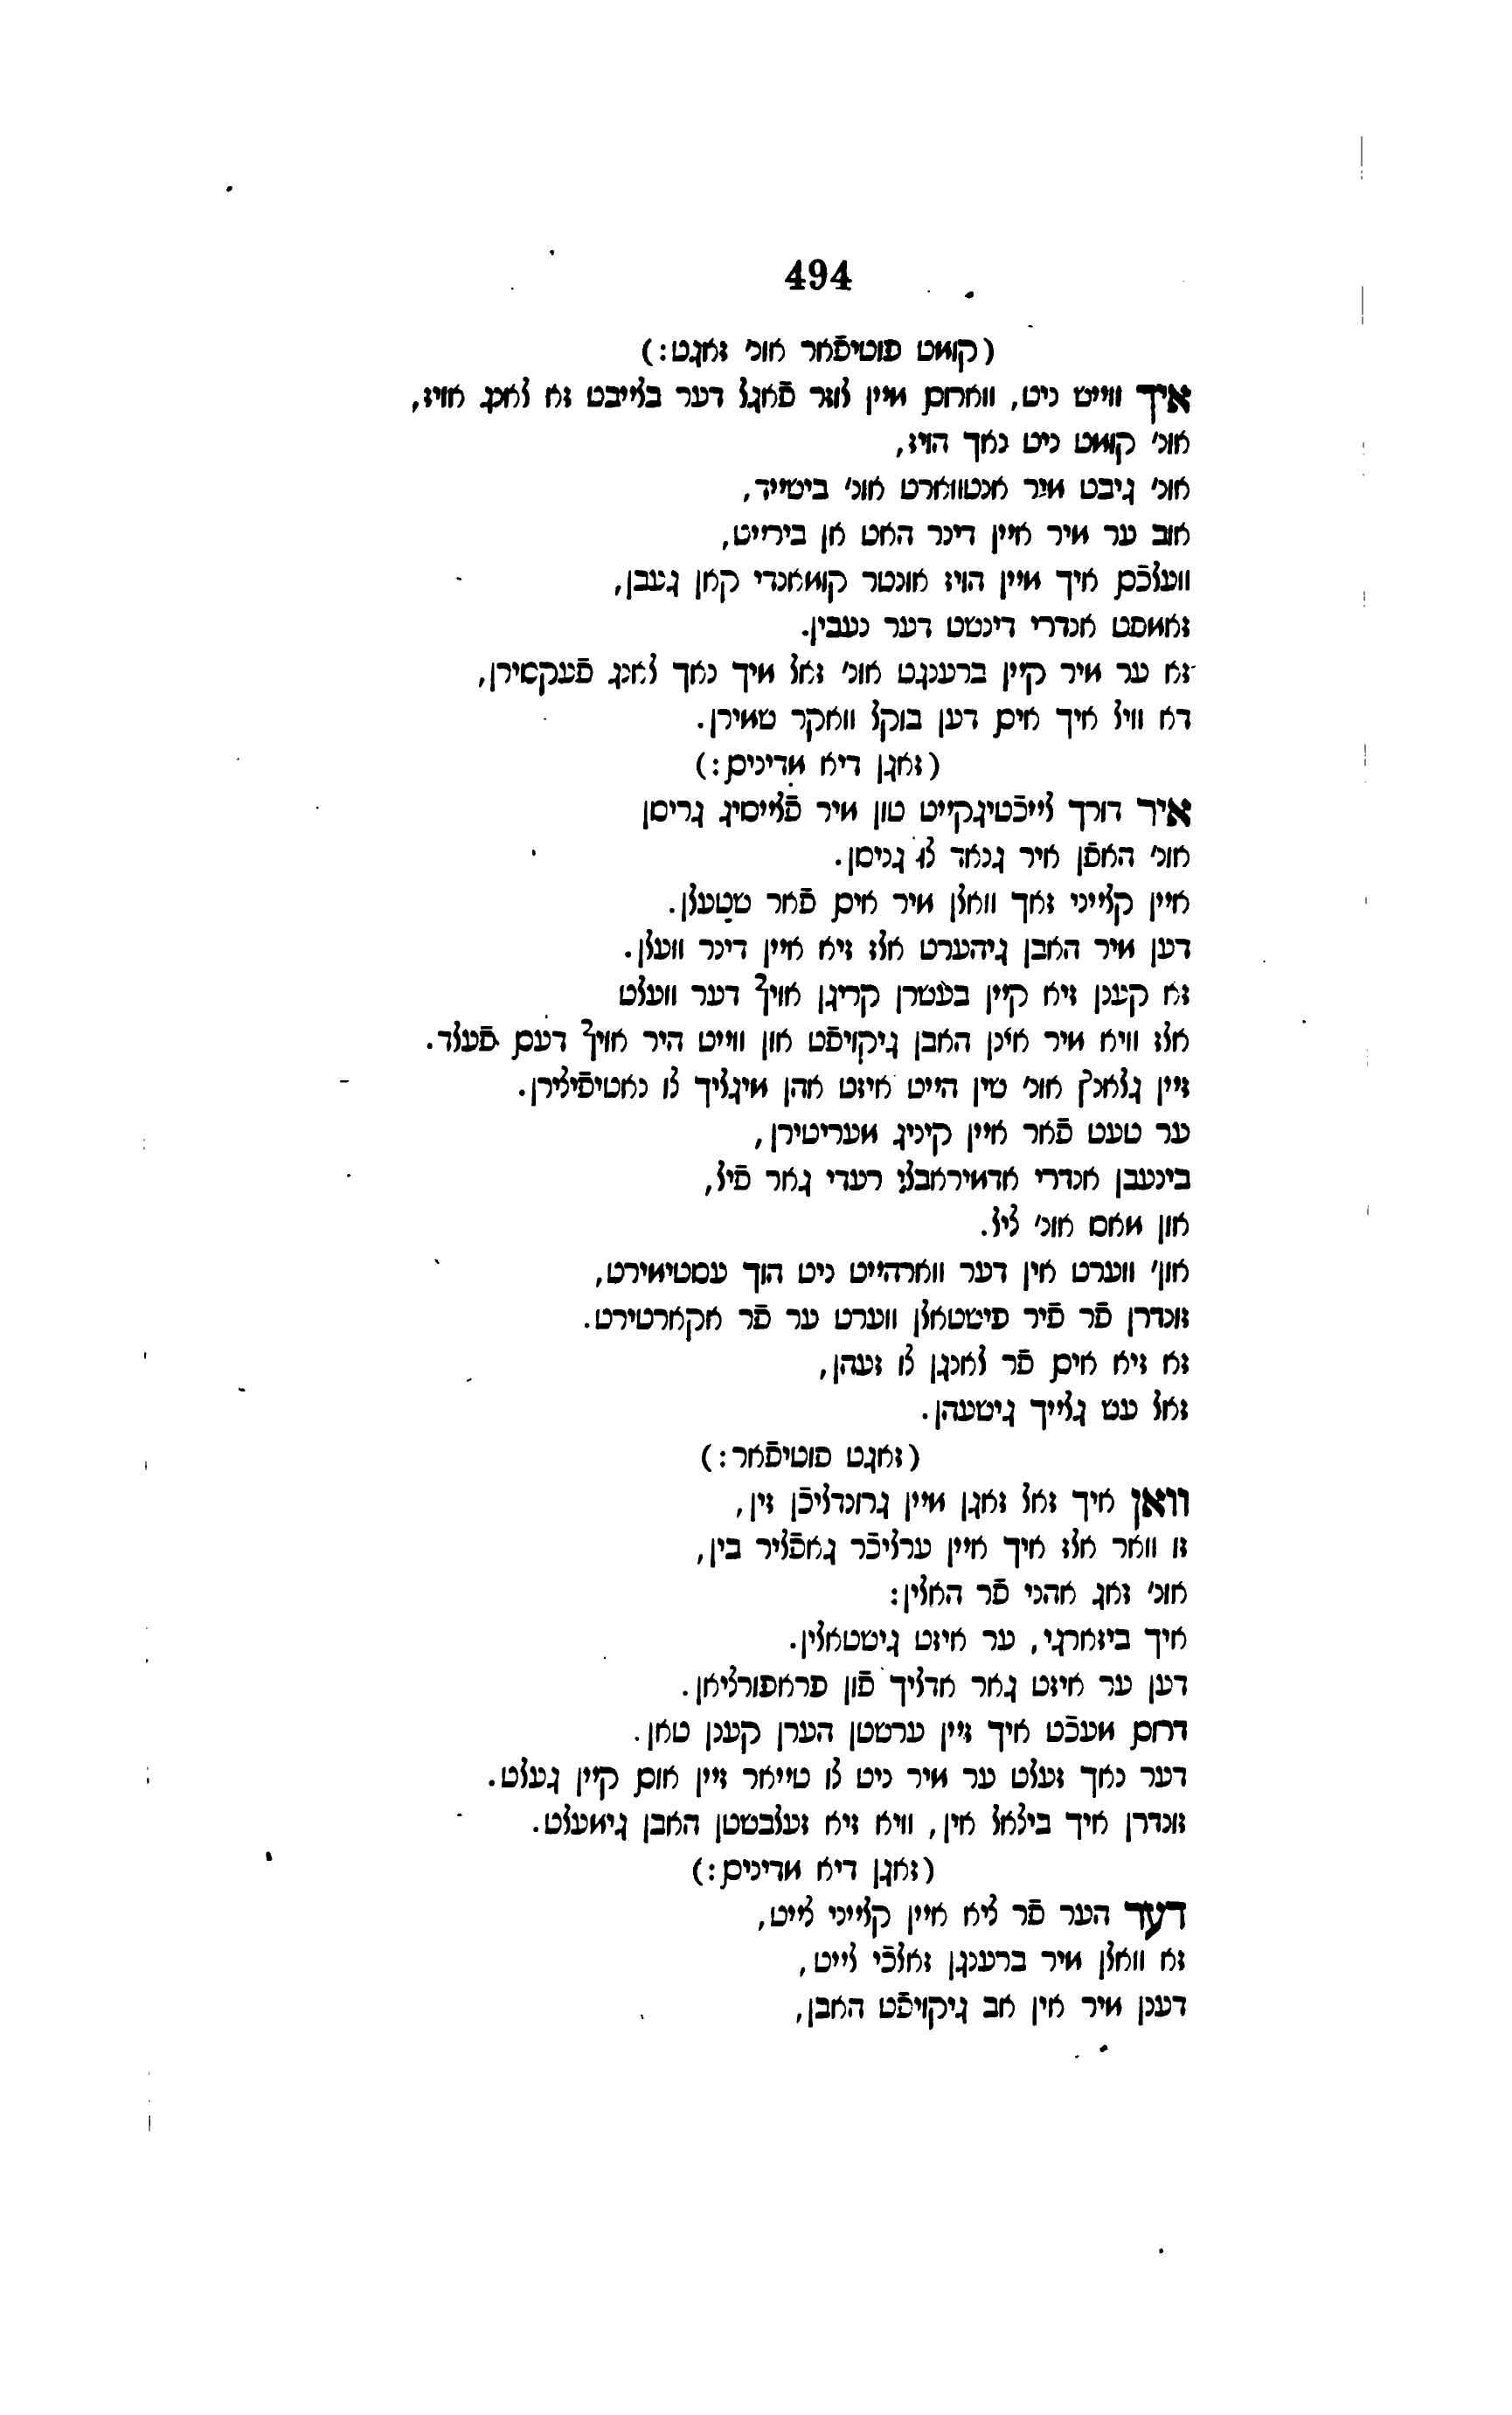 494
(קומט פוטיפֿאר אונ' זאגט:)
איך ווייש ניט, ווארום מיין לוזר פֿאגל דער בלייבט זא לאנג אויז,
אונ' קומט ניט נאך הויז,
אונ' גיבט מיר אנטווארט אונ' בישייד,
אוב ער מיר איין דינר האט אן בירייט,
וועלכֿם איך מיין הויז אונטר קומאנדי קאן געבן,
זאמפט אנדרי דינשט דער נעבין.
זא ער מיר קיין ברענגט אונ' זאל מיך נאך לאנג פֿעקסירן,
דא וויל איך אים דען בוקל וואקר שמירן.
(זאגן דיא מדינים:)
איר דורך לייכֿטיגקייט טון מיר פֿלייסיג גריסן
אונ' האפֿן איר גנאד צו גניסן.
איין קלייני זאך וואלן מיר אים פֿאר שטעלן.
דען מיר האבן גיהערט אלז זיא איין דינר וועלן.
זא קענן זיא קיין בעשרן קריגן אויף דער וועלט
אלז וויא מיר אינן האבן גיקויפֿט און ווייט היר אויף דעם פֿעלד.
זיין גלאנץ אונ' שין הייט איזט אהן מיגליך צו נאטיפֿיצירן.
ער טעט פֿאר איין קיניג מעריטירן,
בינעבן אנדרי אדמיראבלי רעדי גאר פֿיל,
און מאס אונ' ציל.
און' ווערט אין דער ווארהייט ניט הוך עסטימירט,
זונדרן פֿר פֿיר פישטאלן ווערט ער פֿר אקארטירט.
זא זיא אים פֿר לאנגן צו זעהן,
זאל עש גלייך גישעהן.
(זאגט פוטיפֿאר:)
וואן איך זאל זאגן מיין גרונדליכֿן זין,
זו וואר אלז איך איין ערליכֿר גאפֿליר בין,
אונ' זאג אהני פֿר האלין:
איך ביזארגי, ער איזט גישטאלין.
דען ער איזט גאר אדליך פֿון פראפורציאן.
דרום מעכֿט איך זיין ערשטן הערן קענן טאן.
דער נאך זעלט ער מיר ניט צו טייאר זיין אום קיין געלט.
זונדרן איך ביצאל אין, וויא זיא זעלבשטן האבן גימעלט.
(זאגן דיא מדינים:)
דער הער פֿר ציא איין קלייני צייט,
זא וואלן מיר ברענגן זאלכֿי לייט,
דענן מיר אין אב גיקויפֿט האבן,